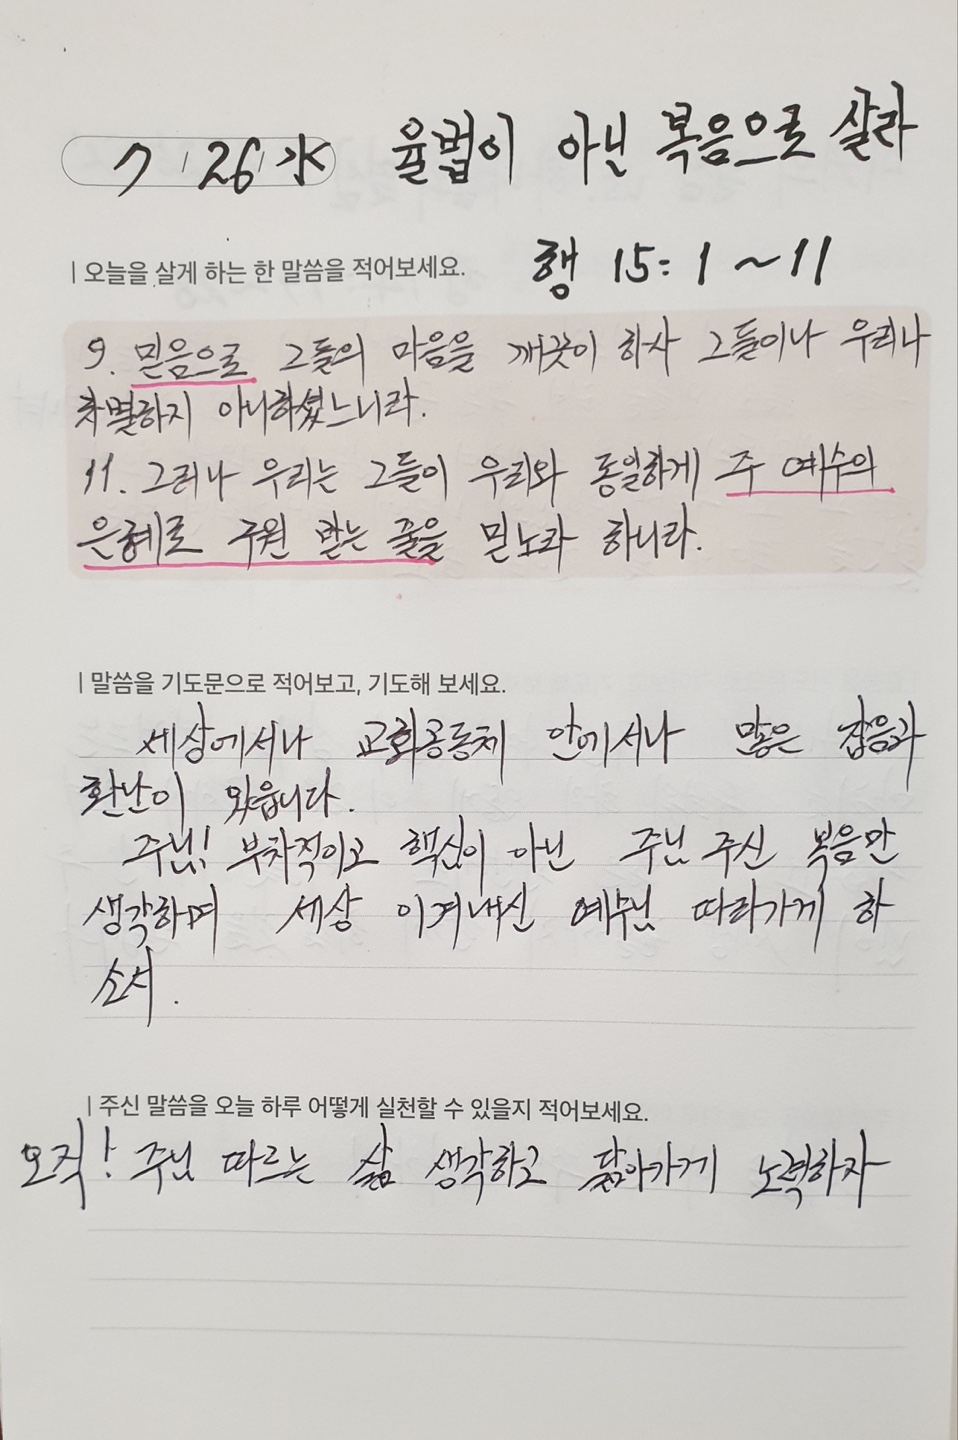 7 26 水 율법이 아닌 복음으로 살라
| 오늘을 살게 하는 한 말씀을 적어보세요. 행 15:1~11
9. 믿음으로 그들의 마음을 깨끗이 하사 그들이나 우리나
차별하지 아니하셨느니라.
11. 그러나 우리는 그들이 우리와 동일하게 주 예수의
은혜로 구원 받는 줄을 믿노라 하니라.
| 말씀을 기도문으로 적어보고, 기도해 보세요.
세상에서나 교회공동체 안에서나 많은 잡음과
환난이 있읍니다.
주님! 부차적이고 핵심이 아닌 주님 주신 복음만
생각하며 세상 이겨내신 예수님 따라가게 하
소서.
| 주신 말씀을 오늘 하루 어떻게 실천할 수 있을지 적어보세요.
오직! 주님 따르는 삶 생각하고 닮아가게 노력하자